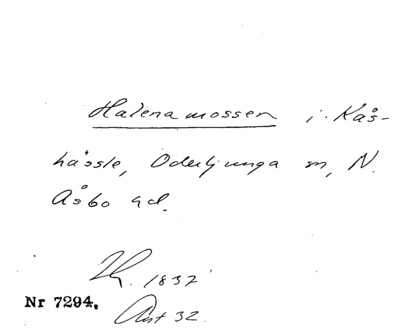 Halenamossen i Kås-
hässle, Oderljunga sn, N.
Åsbo hd.
1837
Nr 7294. Akt 32.